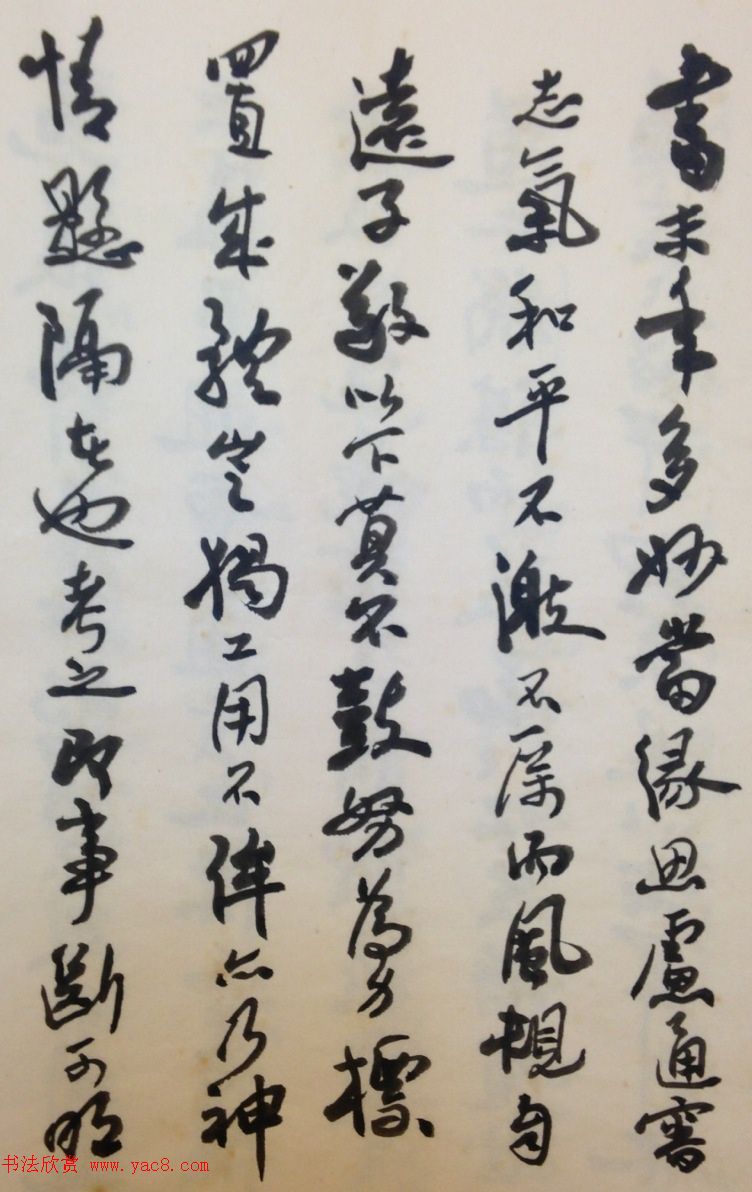 書末年多妙當緣思慮通審
志氣和平不激不厲而風規自
遠子敬以下莫不鼓努為力標
置成體豈獨工用不侔亦乃神
情懸隔者也考之即事斷可明
书法欣赏 www.yac8.com